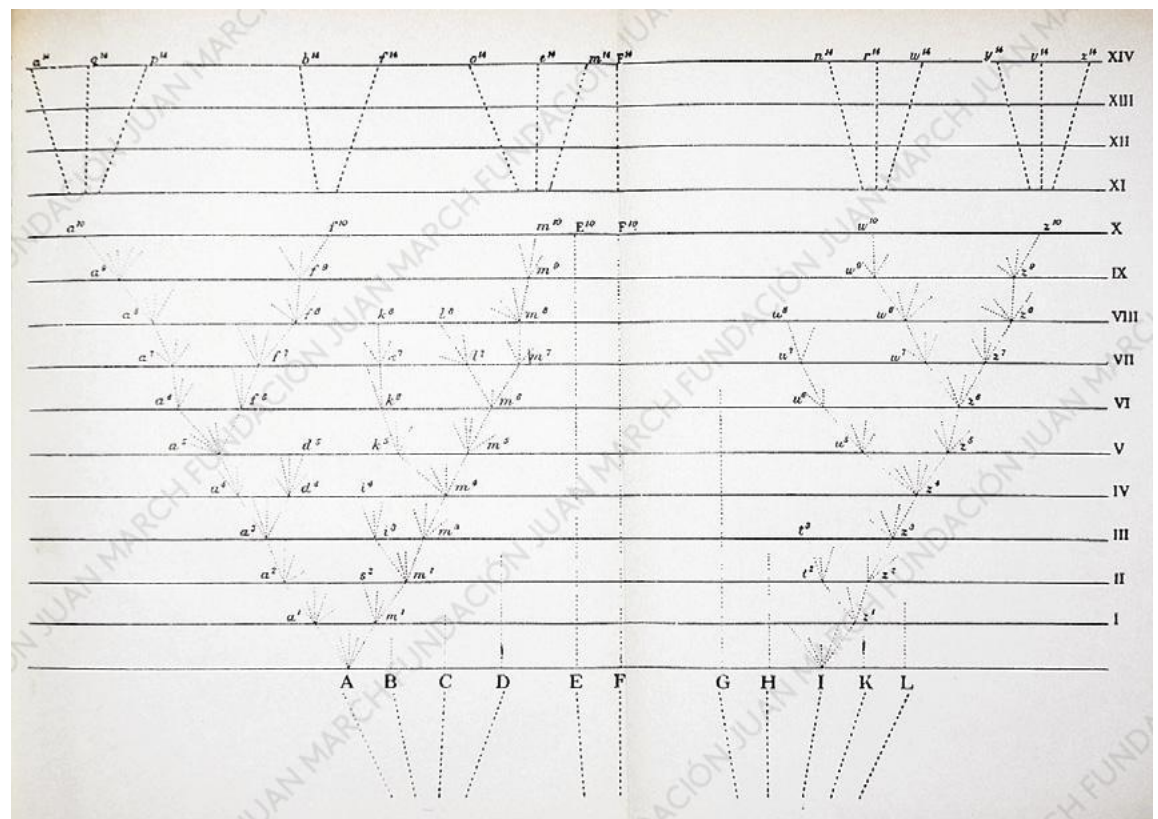 a¹⁴ q¹⁴ p¹⁴ b¹⁴ f¹⁴ o¹⁴ e¹⁴ m¹⁴ F¹⁴ n¹⁴ r¹⁴ w¹⁴ y¹⁴ v¹⁴ z¹⁴ XIV
XIII
XII
XI
a¹⁰ f¹⁰ m¹⁰ E¹⁰ F¹⁰ w¹⁰ z¹⁰ X
a⁹ f⁹ m⁹ w⁹ z⁹ IX
a⁸ f⁸ k⁸ l⁸ m⁸ u⁸ w⁸ z⁸ VIII
a⁷ f⁷ l⁷ m⁷ u⁷ w⁷ z⁷ VII
a⁶ f⁶ k⁶ m⁶ u⁶ z⁶ VI
a⁵ d⁵ k⁵ m⁵ u⁵ z⁵ V
a⁴ d⁴ i⁴ m⁴ z⁴ IV
a³ i³ m³ t³ z³ III
a² s² m² t² z² II
a¹ m¹ z¹ I
A B C D E F G H I K L
FUNDACIÓN JUAN MARCH